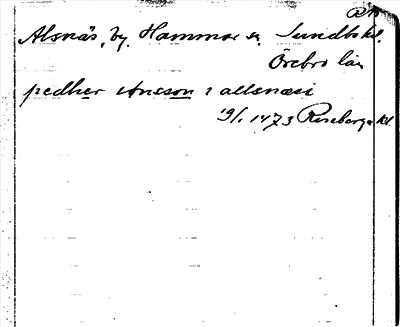 RA
Alsnäs, by, Hammar sn, Sundbo hd.
Örebro län
pedher Ansson i allsnæsi
19/1 1473 Riseberga kl.